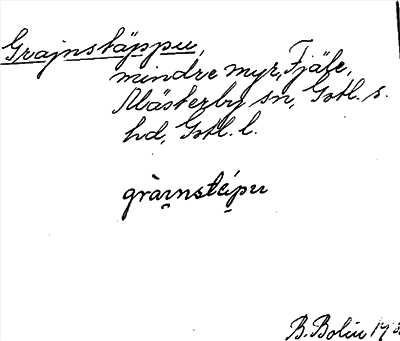 Grajnstäppu,
mindre myr, Fjäle,
Mästerby sn, Gotl. s.
hd, Gotl. l.
gràinstépu
B. Bolin